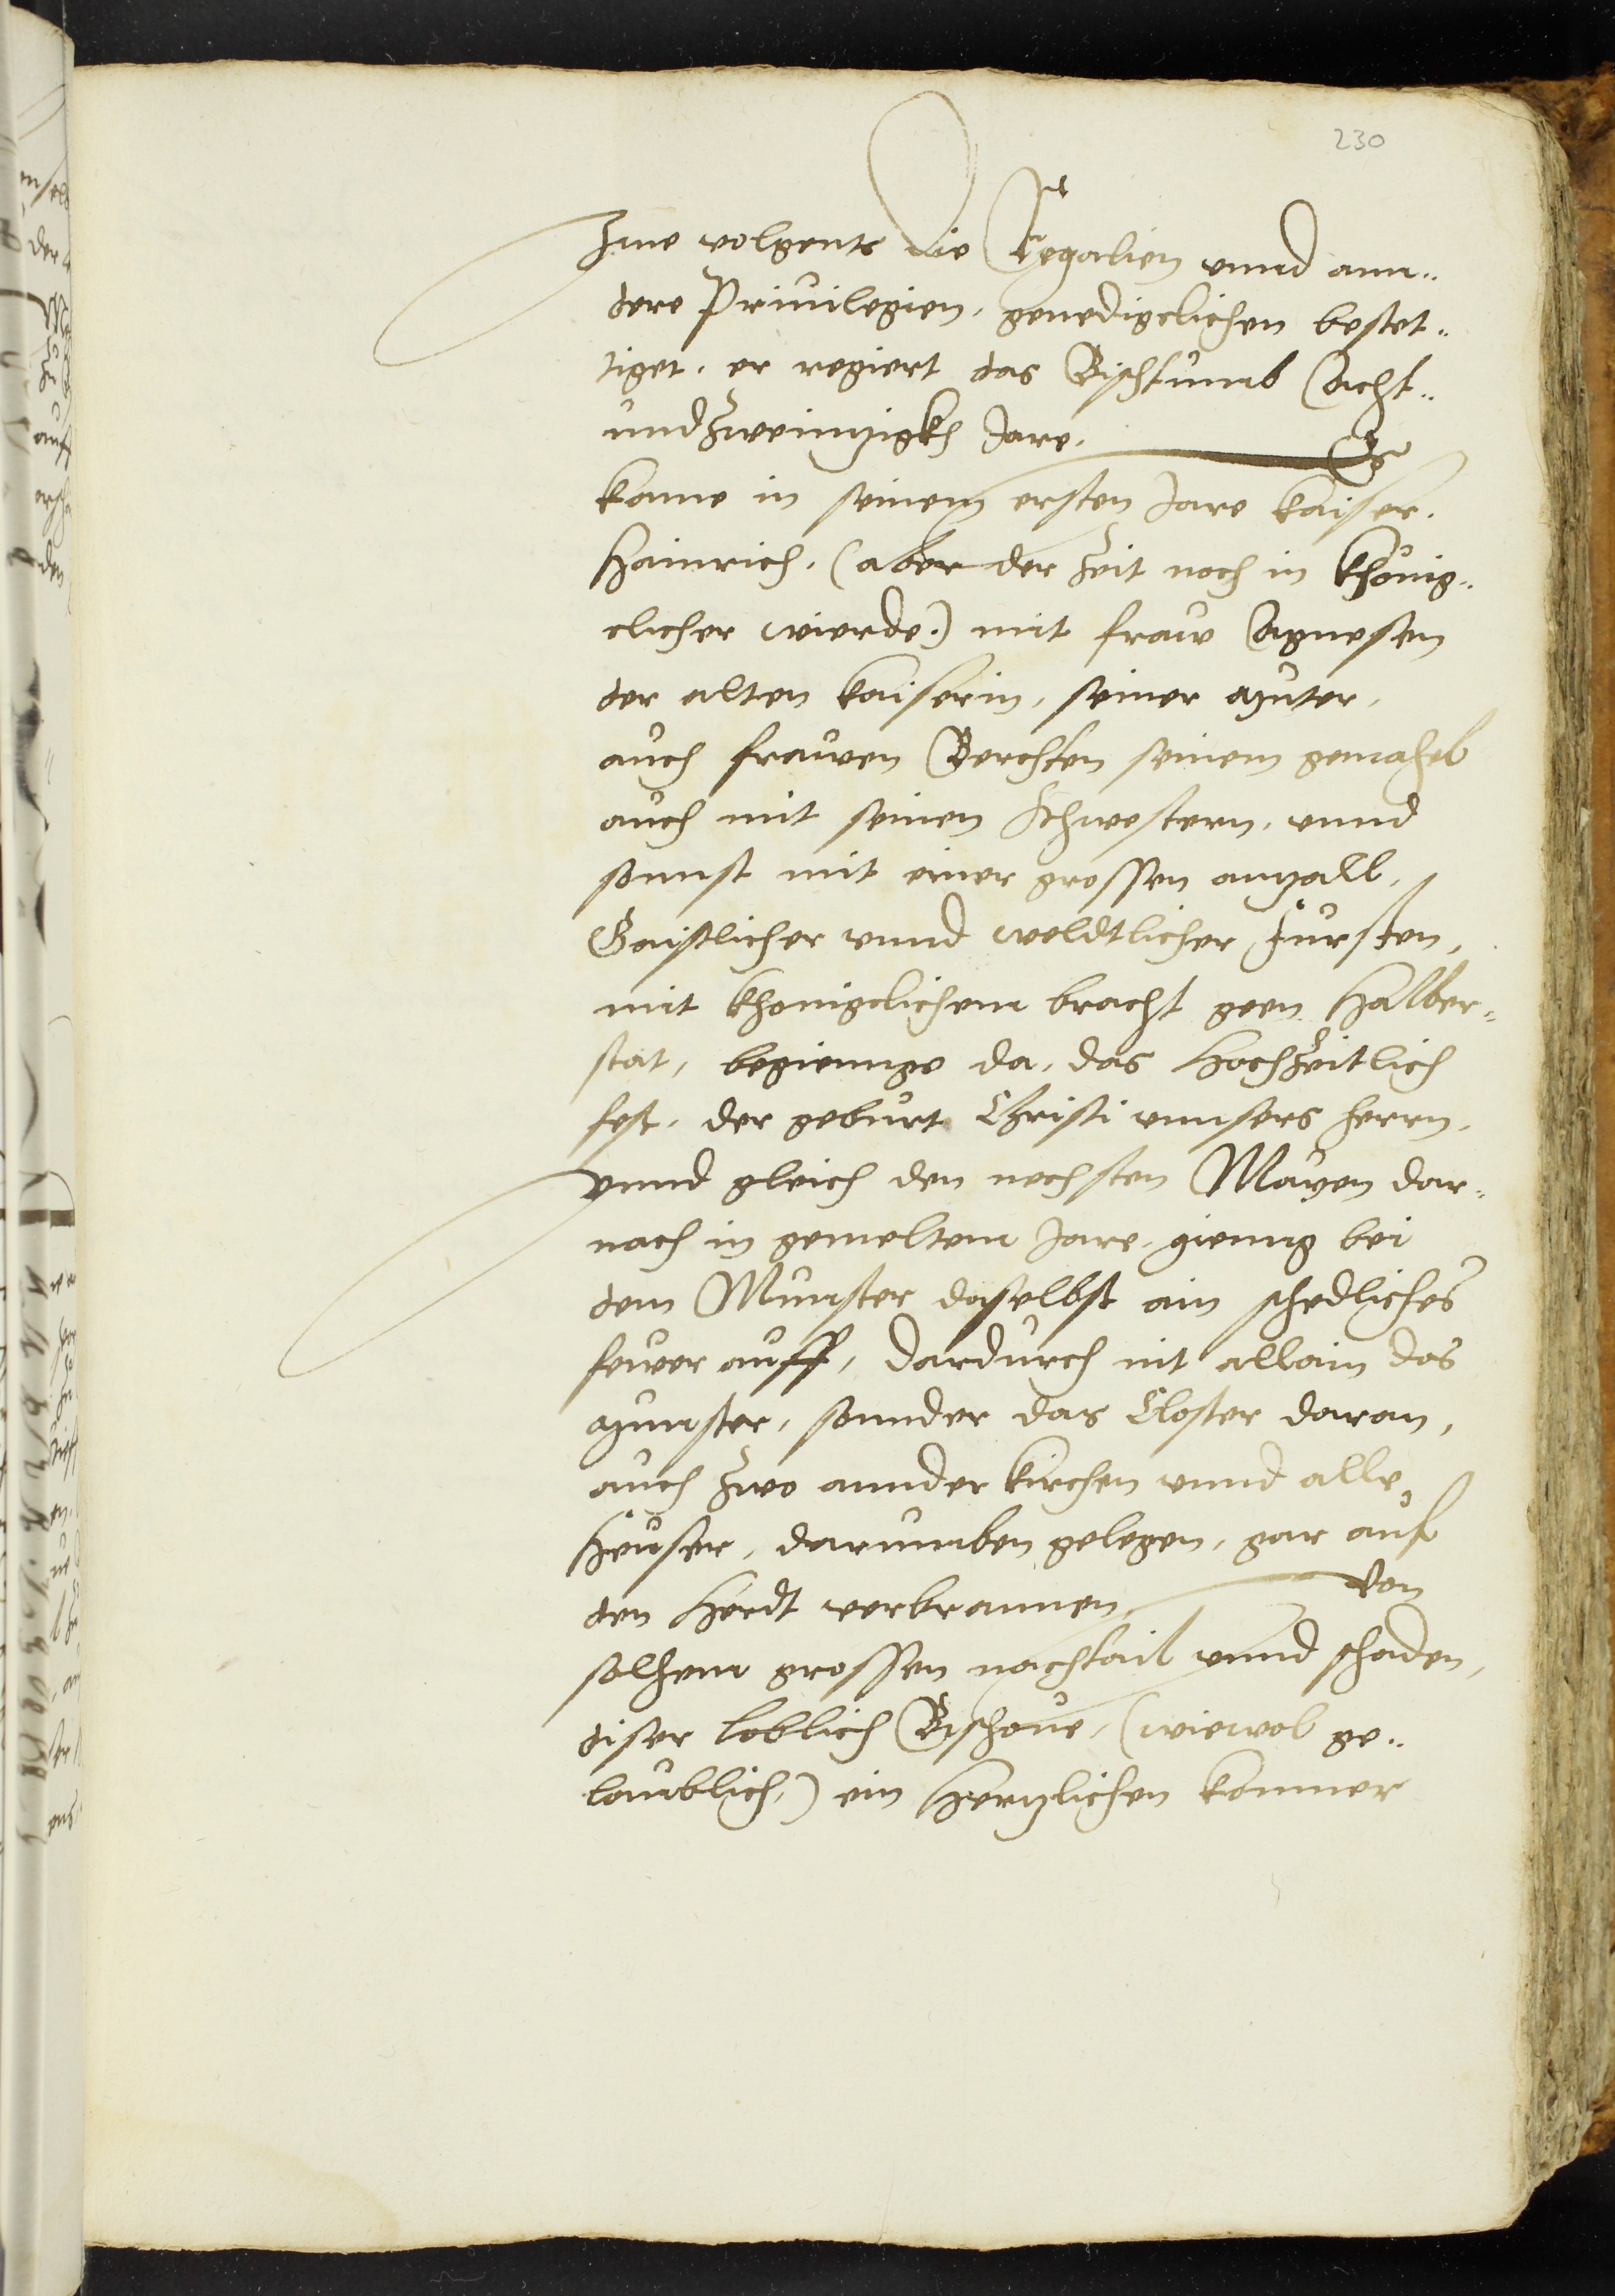 230
Ime volgents die Regalien vnnd ann¬
dere Priuilegien, genedigclichen bestet¬
tiget, er regiert das Bischtumb Acht¬
undzweinnzigkh Jare. Es
kame in seinem ersten Jare kaiser
Hainrich, (aber der Zeit noch in khönig¬
clicher wierde,) mit fraw Agnesen
der alten kaiserin, seiner muter,
auch frawen Berchten seinem gemahel
auch mit seinen Schwestern, vnnd
sonnst mit einer grossen anzall,
Gaistlicher vnnd weldtlicher Fursten,
mit khonigclichem bracht geen Halber¬
stat, begiennge da, das Hochzeitlich
fest, der geburt Christi vnnsers herrn,
vnnd gleich den nechsten Mayen dar¬
nach in gemeltem Jare, gienng bei
dem Munster daselbst ain schedliches
fewer auff, dardurch nit allain das
munster, sonnder das Closter daran,
auch zwo annder kirchen vnnd alle
Heuser, darumben gelegen, gar auf
den Herdt verbrannen. Von
solhem grossen nachtail vnnd schaden,
diser loblich Bischoue, (wiewol ge¬
laublich,) ein Hertzlichen kommer